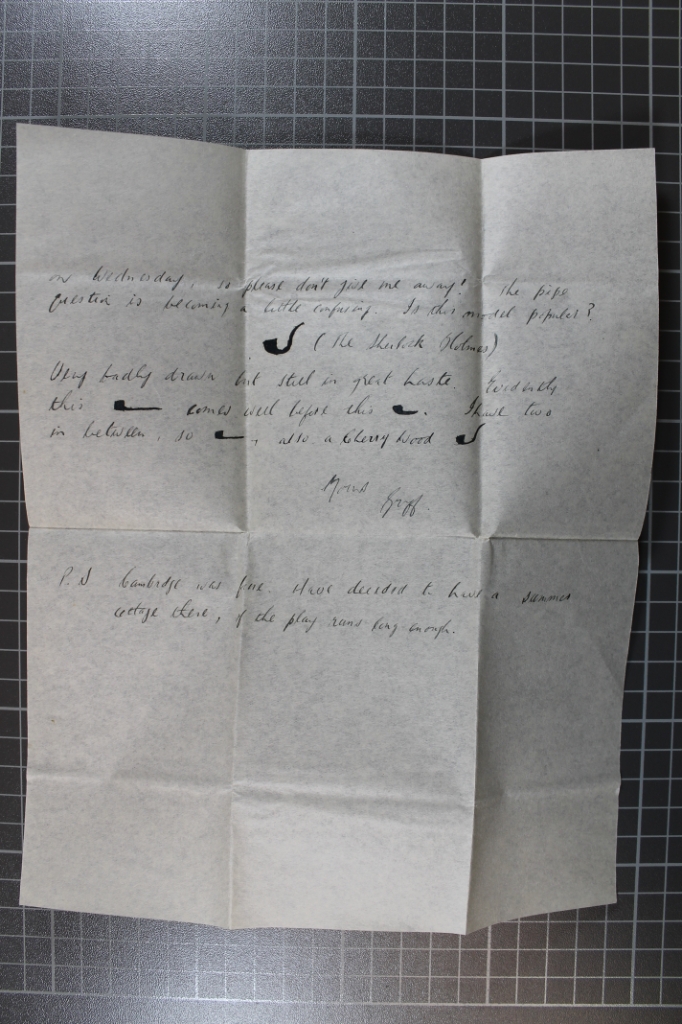 on Wednesday, so please don't give me away! The pipe
question is becoming a little confusing. Is this model popular?
(the Sherlock Holmes)
Very badly drawn but still in great haste. Evidently
this comes well before this . I have two
in between, so , also a Cherry Wood
Yours
P.S Cambridge was fine. Have decided to have a summer
cottage there, if the play runs long enough.